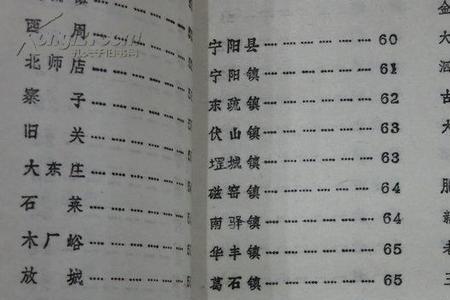 西周
北师店
寨子
旧关
大东庄
石莱
木厂峪
放城
宁阳县 ………………… 60
宁阳镇 ………………… 61
东疏镇 ………………… 62
伏山镇 ………………… 63
堽城镇 ………………… 63
磁窑镇 ………………… 64
南驿镇 ………………… 64
华丰镇 ………………… 65
葛石镇 ………………… 65
金
大
古
新
老